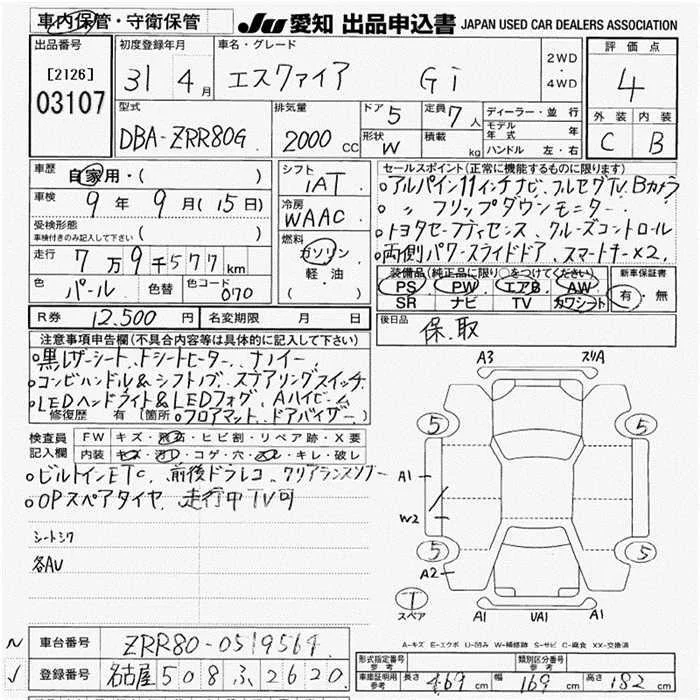 車内保管・守衛保管 JU 愛知 出品申込書 JAPAN USED CAR DEALERS ASSOCIATION
出品番号 初度登録年月 車名・グレード 評価点
[2126] 31年 4月 エスクァイア Gi 2WD・4WD 4
03107 外装 内装
型式 排気量 ドア 5 定員 7人 ディーラー・並行 C B
DBA-ZRR80G 2000cc 形状 W 積載 kg モデル年式 年
ハンドル 左・右
車歴 自家用・( ) シフト セールスポイント(正常に機能するものに限ります)
車検 9年 9月(15日) IAT ○アルパイン11インチナビ、フルセグTV、Bカメラ
冷房 ○ 〃 フリップダウンモニター
受検形態 WAAC ○トヨタセーフティセンス、クルーズコントロール
車検付きのみ記入して下さい ( ) 燃料 ○両側パワースライドドア、スマートキー×2、
走行 7万9千577km ガソリン 装備品(純正品に限り○をつけてください) 新車保証書
色 パール 色替 色コード 070 軽油 PS PW エアB AW 有・無
( ) SR ナビ TV カワシート
R券 12,500円 名変期限 月 日 後日品 保、取
注意事項申告欄(不具合内容等は具体的に記入して下さい)
○黒レザーシート、Fシートヒーター、ナノイー
○コンビハンドル&シフトノブ、ステアリングスイッチ
○LEDヘッドライト&LEDフォグ、Aハイビーム
修復歴 有(箇所 ○フロアマット、ドアバイザー)
検査員 FW キズ・飛石・ヒビ割・リペア跡・X要
記入欄 内装 キズ・汚レ・コゲ・穴・スレ・キレ・破レ
○ビルトインETC、前後ドラレコ、クリアランスソナー
○OPスペアタイヤ、走行中TV可
シートシワ
各AU
A3 スリA
5 5
A1
W2
5 5
A2
T スペア A1 UA1 A1
A-キズ E-エクボ U-凹み W-補修跡 S-サビ C-腐食 XX-交換済
車台番号 ZRR80-0519564 形式指定番号 参考 類別区分番号 参考
登録番号 名古屋 508 ふ 2620 車庫証明用 参考 長さ 469cm 幅 169cm 高さ 182cm